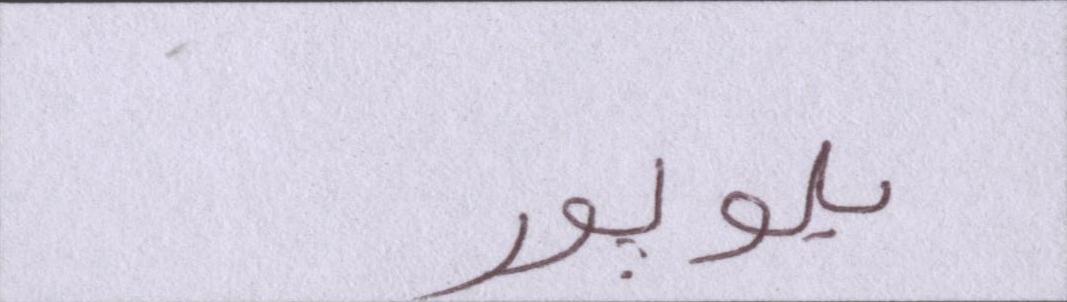 یلو پور